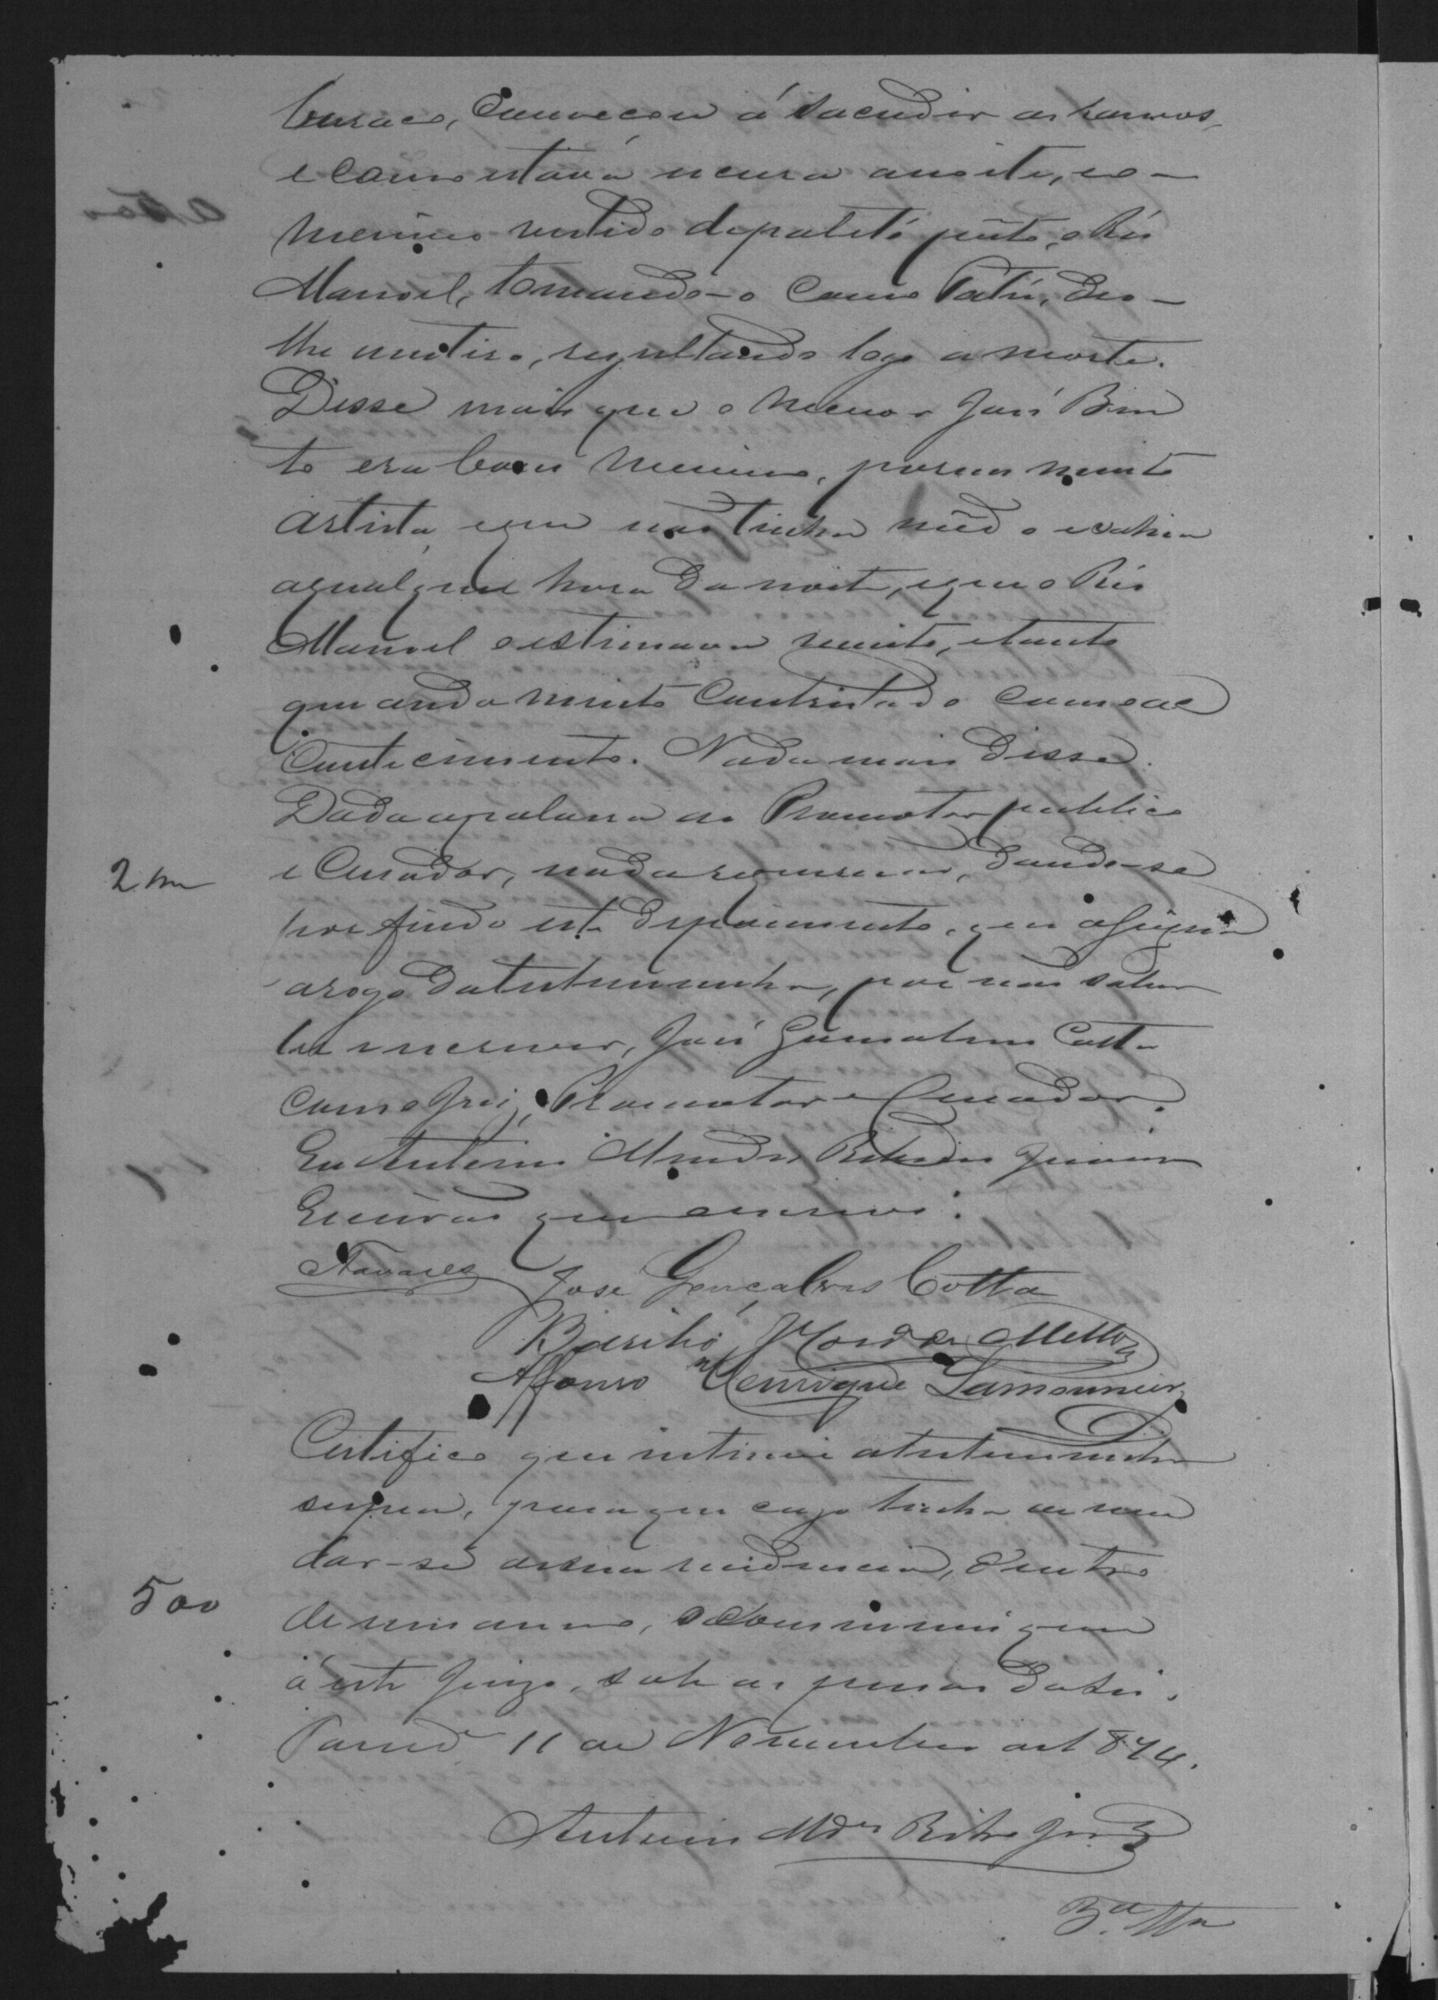 buraco, começou á sacudir os ramos,
e como estava escura a noite, e o
menino vestido de palitó preto, o Réo
Manoel, tomando-o como Patú, deo-
lhe um tiro, resultando logo a morte.
Disse mais que o menor José Ben
to era bom menino, porem muito
artista, e que não tinha medo e sahia
a qualquer hora da noite, e que o Réo
Manoel o estimava muito, e tanto
que anda muito contristado com o ac
contecimento. Nada mais disse.
Dada a palavra ao Promotor publico
2 em e Curador, nada requererão, dando-se
por findo este depoimento, que assigna
a rogo da testemunha, por não saber
ler e escrever, José Gonsalves Cotta
com o Juiz, Promotor e Curador.
Eu Antonio Mendes Ribeiro Junior
Escrivão que escrevi.
Tavares José Gonçalves Cotta
Mello
Affonso Henrique Lamounier
Certifico que intimei a testemunha
supra, para que cazo tenha de mu
dar-se de sua residencia, dentro
500 de um anno, o communique
á este Juizo, sob as penas da Lei.
11 de Novembro de 1874.
Antonio Mdes Ribro Jor
3.a Ttª